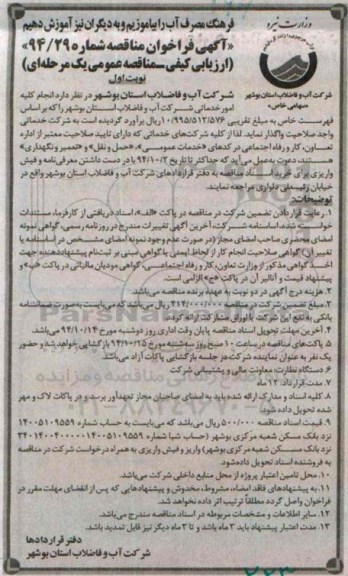 وزارت نیرو
شرکت آب و فاضلاب استان بوشهر
«سهامی خاص»
فرهنگ مصرف آب را بیاموزیم و به دیگران نیز آموزش دهیم
«آگهی فراخوان مناقصه شماره ۹۴/۲۹»
(ارزیابی کیفی ـ مناقصه عمومی یک مرحله‌ای)
نوبت اول
شرکت آب و فاضلاب استان بوشهر در نظر دارد انجام کلیه
امور خدماتی شرکت آب و فاضلاب استان بوشهر را که بر اساس
فهرست خاص به مبلغ تقریبی ۱۰/۹۹۵/۵۱۲/۵۷۶ ریال برآورد گردیده است به شرکت خدماتی
واجد صلاحیت واگذار نماید. لذا از کلیه شرکت‌های خدماتی که دارای تایید صلاحیت معتبر از اداره
تعاون، کار و رفاه اجتماعی در کدهای «خدمات عمومی»، «حمل و نقل» و «تعمیر و نگهداری»
هستند، دعوت به‌عمل می‌آید که حداکثر تا تاریخ ۹۴/۱۰/۳ با در دست داشتن معرفی‌نامه و فیش
واریزی برای خرید اسناد مناقصه به دفتر قراردادهای شرکت آب و فاضلاب استان بوشهر واقع در
خیابان رئیسعلی دلواری مراجعه نمایند.
توضیحات:
۱. رعایت قراردادن تضمین شرکت در مناقصه در پاکت «الف»، اسناد دریافتی از کارفرما، مستندات
خواسته شده، اساسنامه شرکت، آخرین آگهی تغییرات مندرج در روزنامه رسمی، گواهی نمونه
امضای محضری صاحب امضای مجاز (در صورت عدم وجود نمونه امضای مشخص در اساسنامه یا
تغییر آن)، گواهی صلاحیت انجام کار از لحاظ ایمنی یا گواهی مبنی بر ثبت‌نام پیشنهاددهنده جهت
اخذ گواهی مذکور از وزارت تعاون، کار و رفاه اجتماعی، گواهی مودیان مالیاتی در پاکت «ب» و
پیشنهاد قیمت و آنالیز آن در پاکت «ج» الزامی است.
۲. هزینه درج آگهی در دو نوبت به عهده برنده مناقصه می‌باشد.
۳. مبلغ تضمین شرکت در مناقصه ۳۱۴/۰۰۰/۰۰۰ ریال می‌باشد که می‌بایست به صورت ضمانتنامه
بانکی به نفع این شرکت یا اوراق مشارکت ارائه گردد.
۴. آخرین مهلت تحویل اسناد مناقصه پایان وقت اداری روز دوشنبه مورخ ۹۴/۱۰/۱۴ می‌باشد.
۵. پاکت‌های مناقصه در ساعت ۱۰ صبح روز سه‌شنبه مورخ ۹۴/۱۰/۱۵ بازگشایی خواهد شد و حضور
یک نفر به عنوان نماینده شرکت در جلسه بازگشایی پاکات آزاد می‌باشد.
۶. دستگاه نظارت: معاونت مالی و پشتیبانی شرکت
۷. مدت قرارداد: ۱۲ ماه
۸. کلیه اسناد و مدارک ارائه شده باید به امضای صاحبان مجاز تعهدآور برسد و در پاکات لاک و مهر
شده تحویل داده شود.
۹. قیمت اسناد مناقصه ۵۰۰/۰۰۰ ریال می‌باشد که می‌بایست به حساب شماره ۱۴۰۰۵۱۰۹۵۵۹
نزد بانک مسکن شعبه مرکزی بوشهر (حساب شبا شماره
نزد بانک مسکن شعبه مرکزی بوشهر) واریز و فیش واریزی به همراه درخواست شرکت در مناقصه
به فروشنده اسناد تحویل داده شود.
۱۰. محل تامین اعتبار پروژه از محل منابع داخلی شرکت می‌باشد.
۱۱. به پیشنهادهای فاقد امضاء، مشروط، مخدوش و پیشنهادهایی که پس از انقضای مهلت مقرر در
فراخوان واصل گردد مطلقاً ترتیب اثر داده نخواهد شد.
۱۲. سایر اطلاعات و مشخصات مربوطه در اسناد مناقصه مندرج می‌باشد.
۱۳. مدت اعتبار پیشنهاد باید ۳ ماه باشد و تا ۳ ماه دیگر نیز قابل تمدید باشد.
دفتر قراردادها
شرکت آب و فاضلاب استان بوشهر